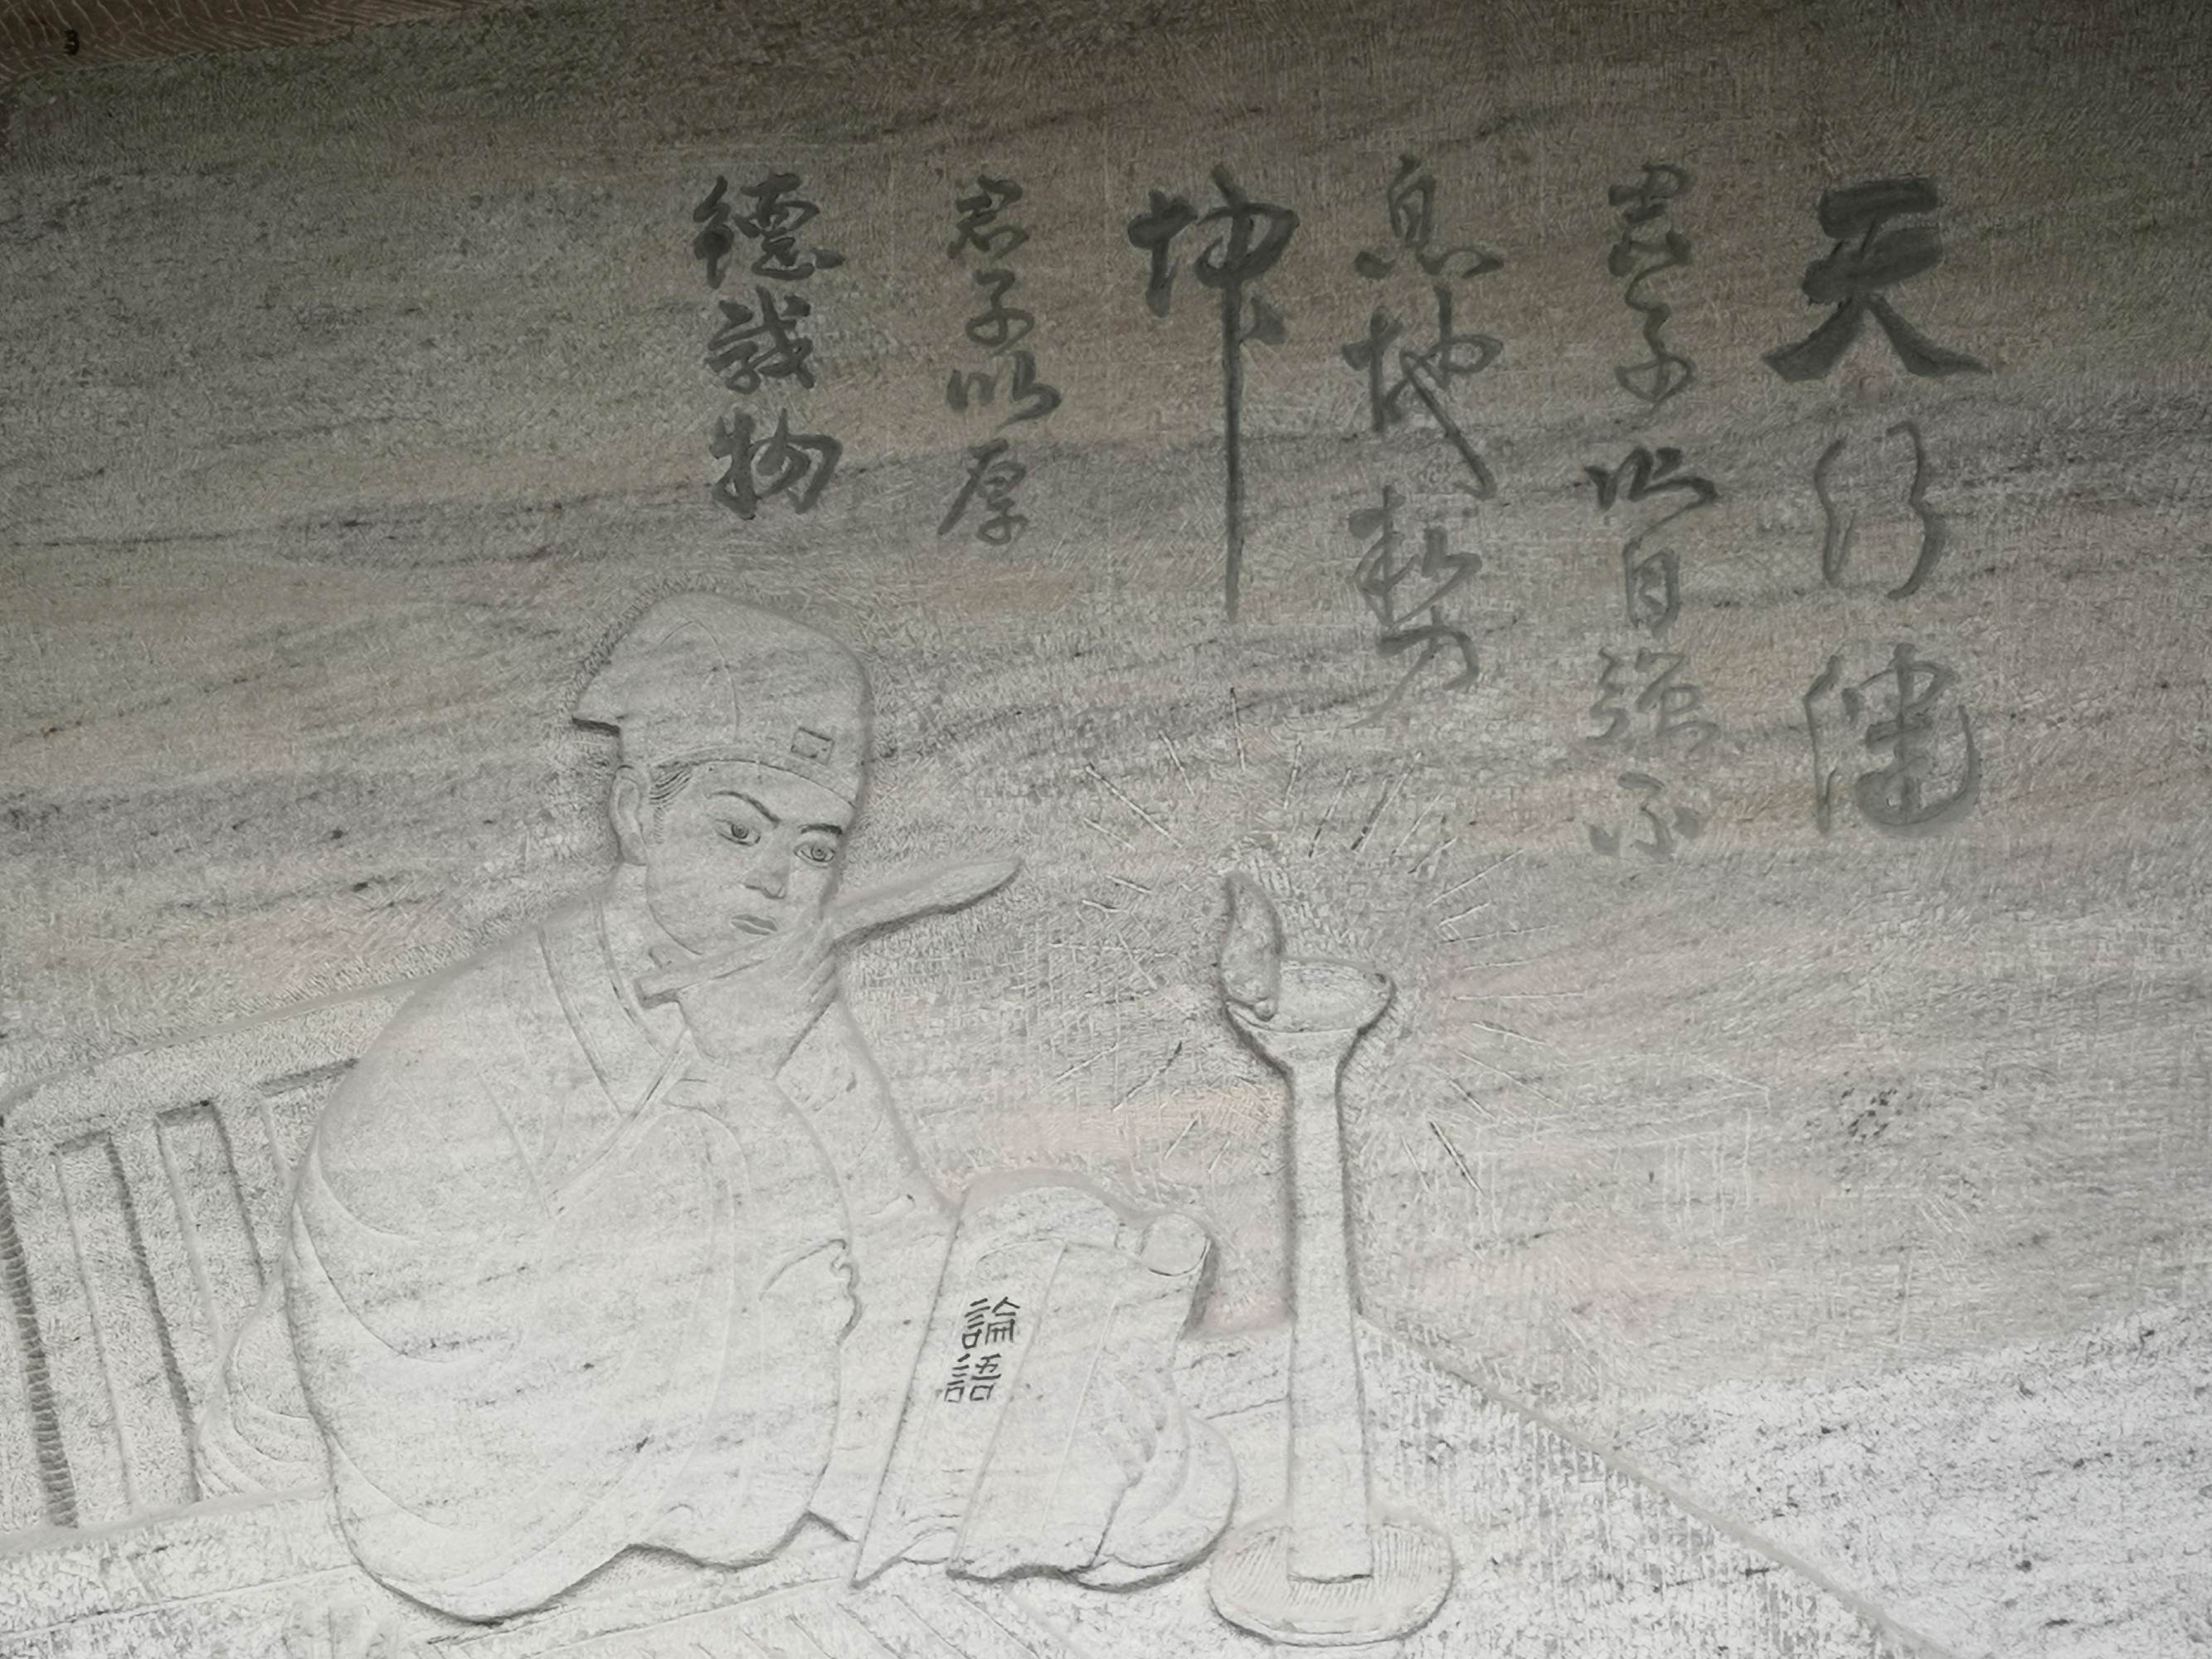 天行健
君子以自強不
息地勢
坤
君子以厚
德載物
論語
3